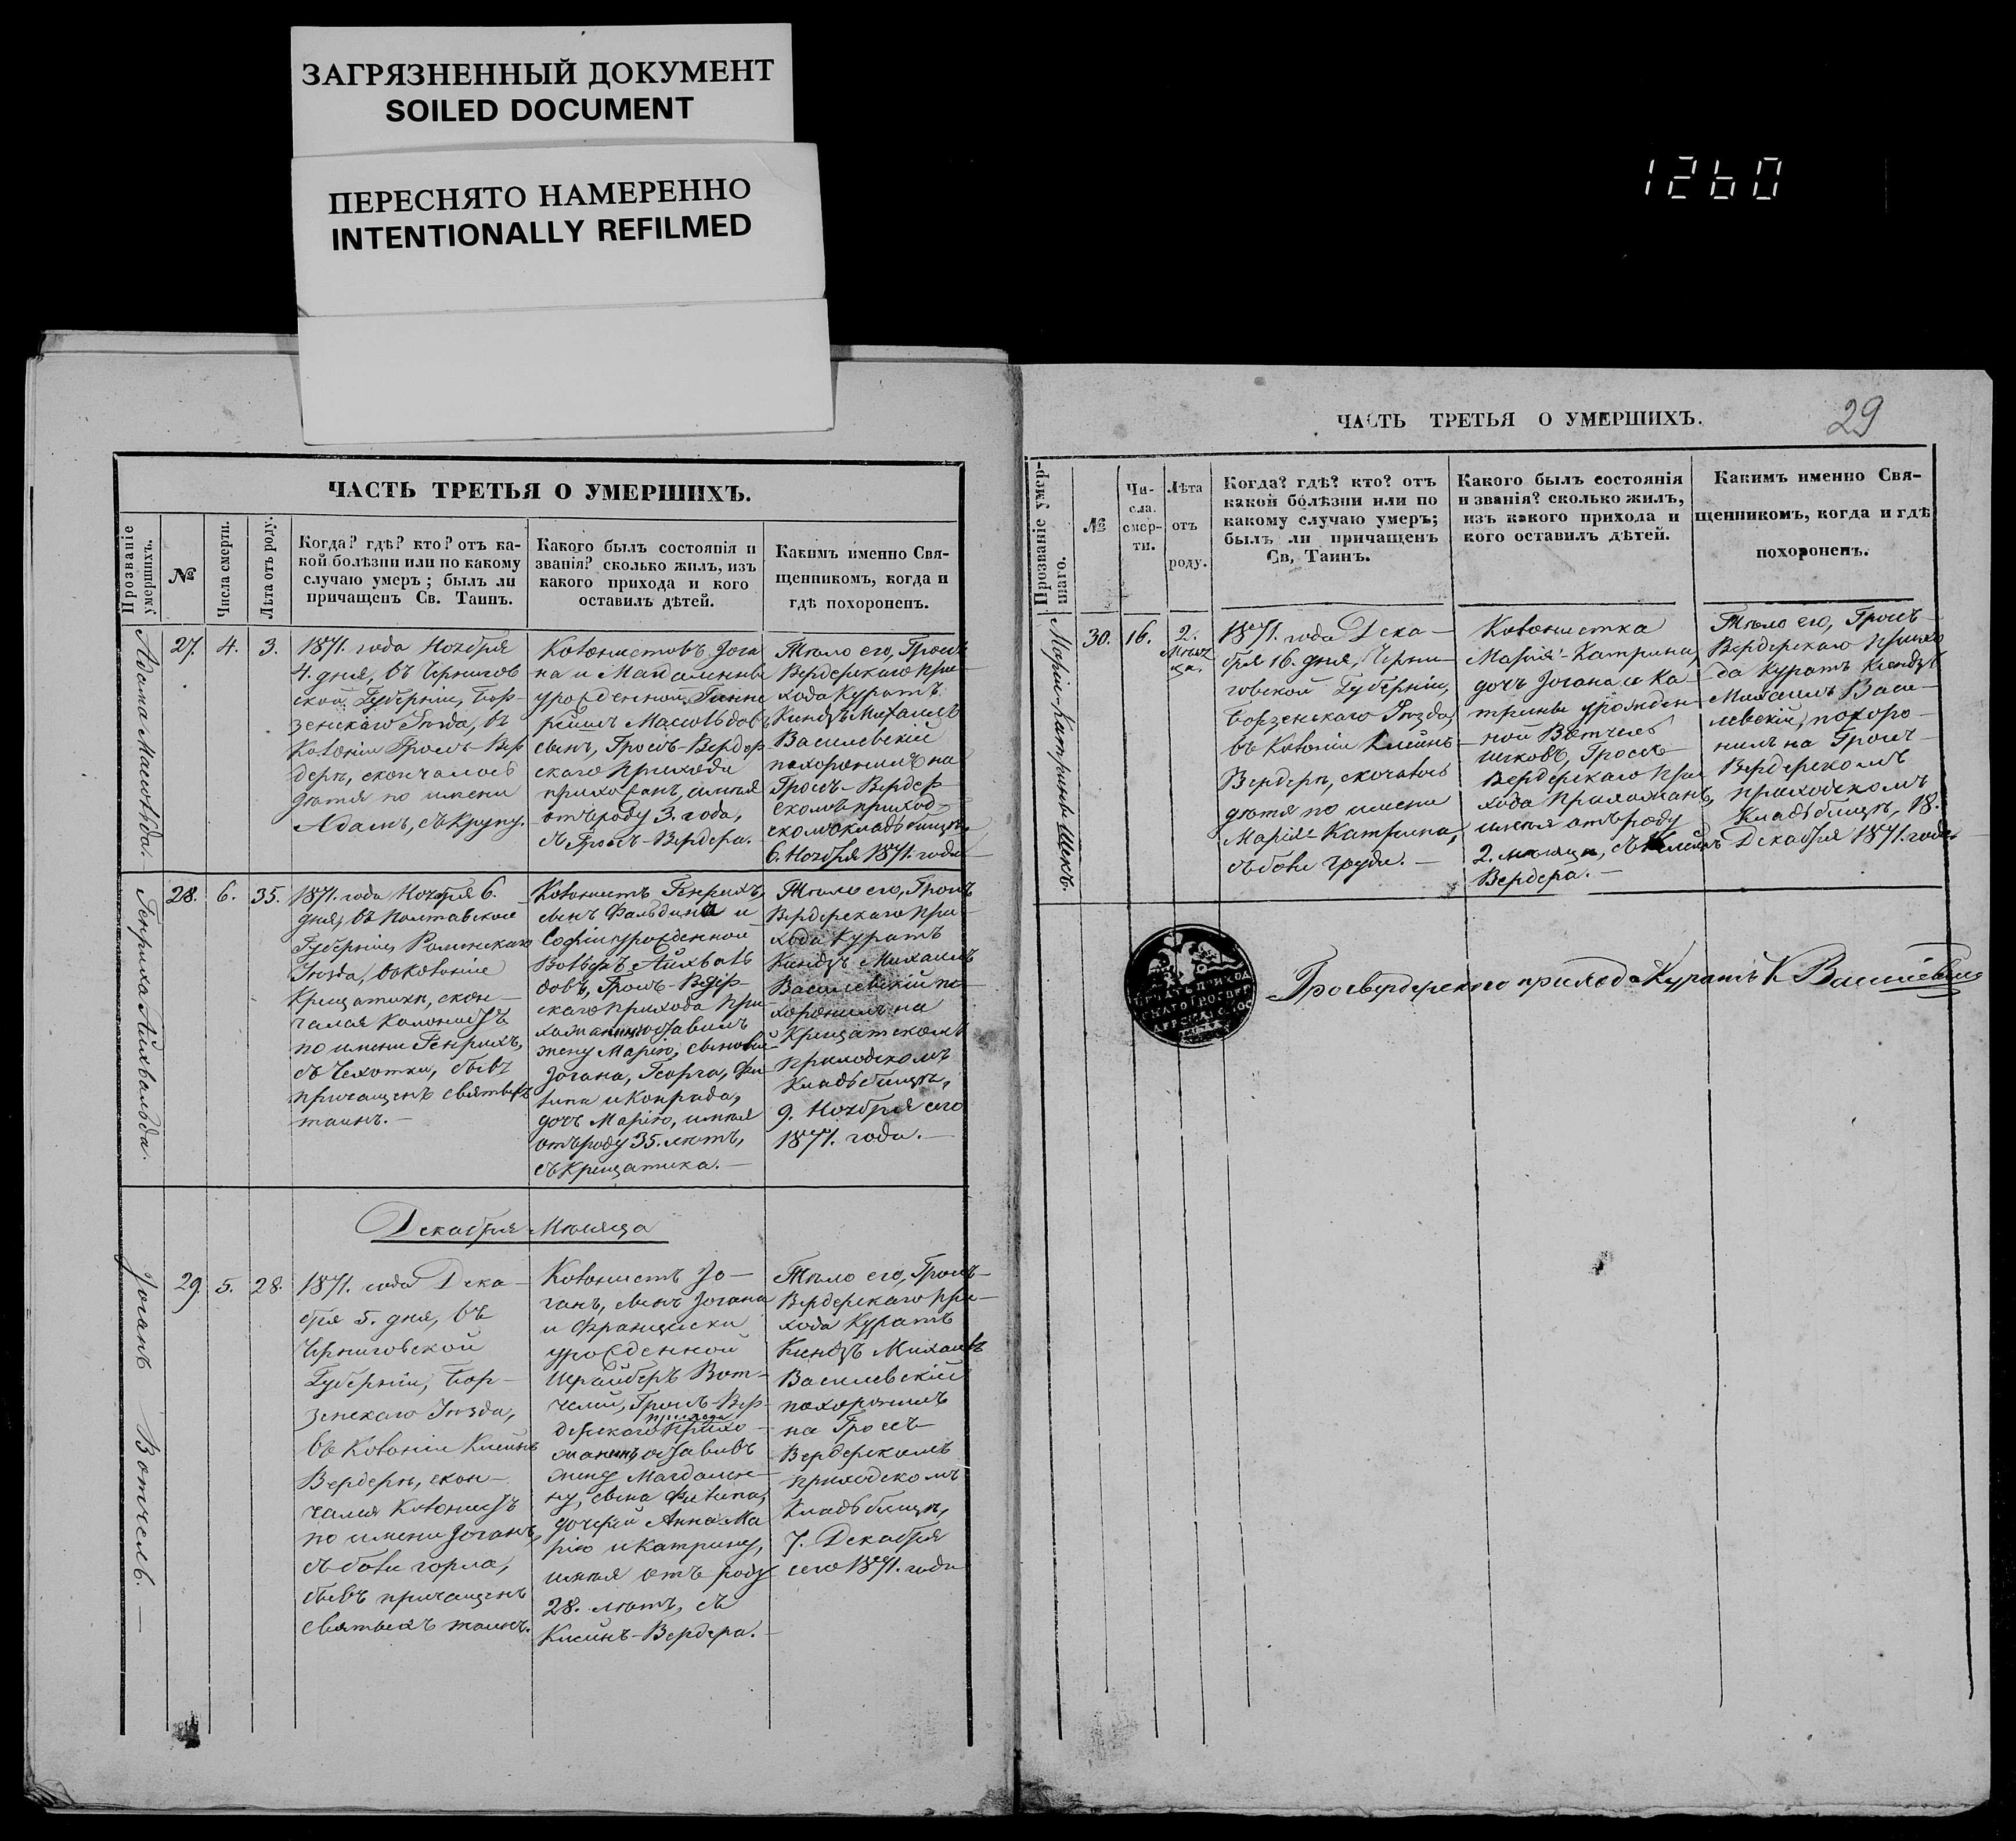 ЗАГРЯЗНЕННЫЙ ДОКУМЕНТ
SOILED DOCUMENT
ПЕРЕСНЯТО НАМЕРЕННО
INTENTIONALLY REFILMED
1260
ЧАСТЬ ТРЕТЬЯ О УМЕРШИХЪ.
Прозваніе
умершихъ.
№
Числа смерти.
Лѣта отъ роду.
Когда? гдѣ? кто? отъ ка-
кой болѣзни или по какому
случаю умеръ; былъ ли
причащенъ Св. Таинъ.
Какого былъ состоянія и
званія? сколько жилъ, изъ
какого прихода и кого
оставилъ дѣтей.
Какимъ именно Свя-
щенникомъ, когда и
гдѣ похороненъ.
27.
4.
3.
1871. года Ноября
4. дня, въ Чернигов
ской Губерніи, Бор-
зенскаго Уѣзда, въ
Колоніи Гросъ-Вер
дерѣ, скончалось
дитя по имени
Адамъ, съ крупу.
Колонистовъ Іога
на и Магдалины
урожденной
сынъ, Гросъ-Вердер
скаго Прихода
прихожанъ, имѣя
отъ роду 3. года,
съ Гросъ-Вердера.
Тѣло его, Гросъ
Вердерскаго При-
хода Куратъ
Ксендзъ Михаилъ
Василевскій
похоронилъ на
Гросъ-Вердер
скомъ приход-
скомъ кладьбищѣ,
6. Ноября 1871. года
Генриха Айхвальда.
28.
6.
35.
1871. года Ноября 6.
дня, въ Полтавской
Губерніи, Роменскаго
Уѣзда, въ Колоніи
Крещатикѣ, скон-
чался Колонистъ
по имени Генрихъ,
съ Чехотки, бывъ
причащенъ святыхъ
таинъ.-
Колонистъ Генрихъ,
сынъ и
Софіи урожденной
Айхваль
довъ, Гросъ-Вердер-
скаго Прихода При-
хожанинъ оставилъ
жену Марію, сыновей
Іогана, Георга, Фи
липа и Конрада,
дочь Марію, имѣя
отъ роду 35. лѣтъ,
съ Крещатика.-
Тѣло его, Гросъ
Вердерскаго При-
хода Куратъ
Ксендзъ Михаилъ
Василевскій по-
хоронилъ на
Крещатскомъ
Приходскомъ
Кладьбищѣ,
9. Ноября сего
1871. года.-
Декабря Мѣсяца
Іоганъ Вотчель.-
29.
5.
28.
1871. года Дека-
бря 5. дня, въ
Черниговской
Губерніи, Бор-
зенскаго Уѣзда,
въ Колоніи Клейнъ
Вердерѣ, скон-
чался Колонистъ
по имени Іоганъ,
съ боли горла,
бывъ причащенъ
святыхъ таинъ.
Колонистъ Іо-
ганъ, сынъ Іогана
и Францишки
урожденной
Шрайберъ Вот-
челей, Гросъ-Вер-
прихода
дерскаго Прихо-
жанинъ оставивъ
жену Магдален-
ну, сына Филипа,
дочерей Анна-Ма
рію и Катрину,
имѣя отъ роду
28. лѣтъ, съ
Клейнъ-Вердера.-
Тѣло его, Гросъ-
Вердерскаго При-
хода Куратъ
Ксендзъ Михаилъ
Василевскій
похоронилъ
на Гросъ
Вердерскомъ
приходскомъ
Кладьбищѣ,
7. Декабря
сего 1871. года
ЧАСТЬ ТРЕТЬЯ О УМЕРШИХЪ.
29
Прозваніе умер-
шаго.
№
Чи-
сла
смер-
ти.
Лѣта
отъ
роду.
Когда? гдѣ? кто? отъ
какой болѣзни или по
какому случаю умеръ;
былъ ли причащенъ
Св. Таинъ.
Какого былъ состоянія
и званія? сколько жилъ,
изъ какого прихода и
кого оставилъ дѣтей.
Какимъ именно Свя-
щенникомъ, когда и гдѣ
похороненъ.
30.
16.
2.
Мѣся
ца.
1871. года Дека-
бря 16. дня, Черни-
говской Губерніи,
Борзенскаго Уѣзда,
въ Колоніи Клейнъ
Вердерѣ, скочалось
дитя по имени
Марія-Катрина,
съ боли груди.-
Колонистка
Марія-Катрина,
дочь Іогана и Ка
трины урожден
ной Вотчель
Гросъ-
Вердерскаго При
хода Прихожанъ,
имѣя отъ роду
2. мѣсяца, съ Клейнъ
Вердера.-
Тѣло его, Гросъ-
Вердерскаго Прихо
да Куратъ Ксендзъ
Михаилъ Васи-
левскій, похоро-
нилъ на Гросъ-
Вердерскомъ
приходскомъ
Кладьбищѣ, 18.
Декабря 1871. года
Гросвердерского прихода Куратъ К. Василевскій